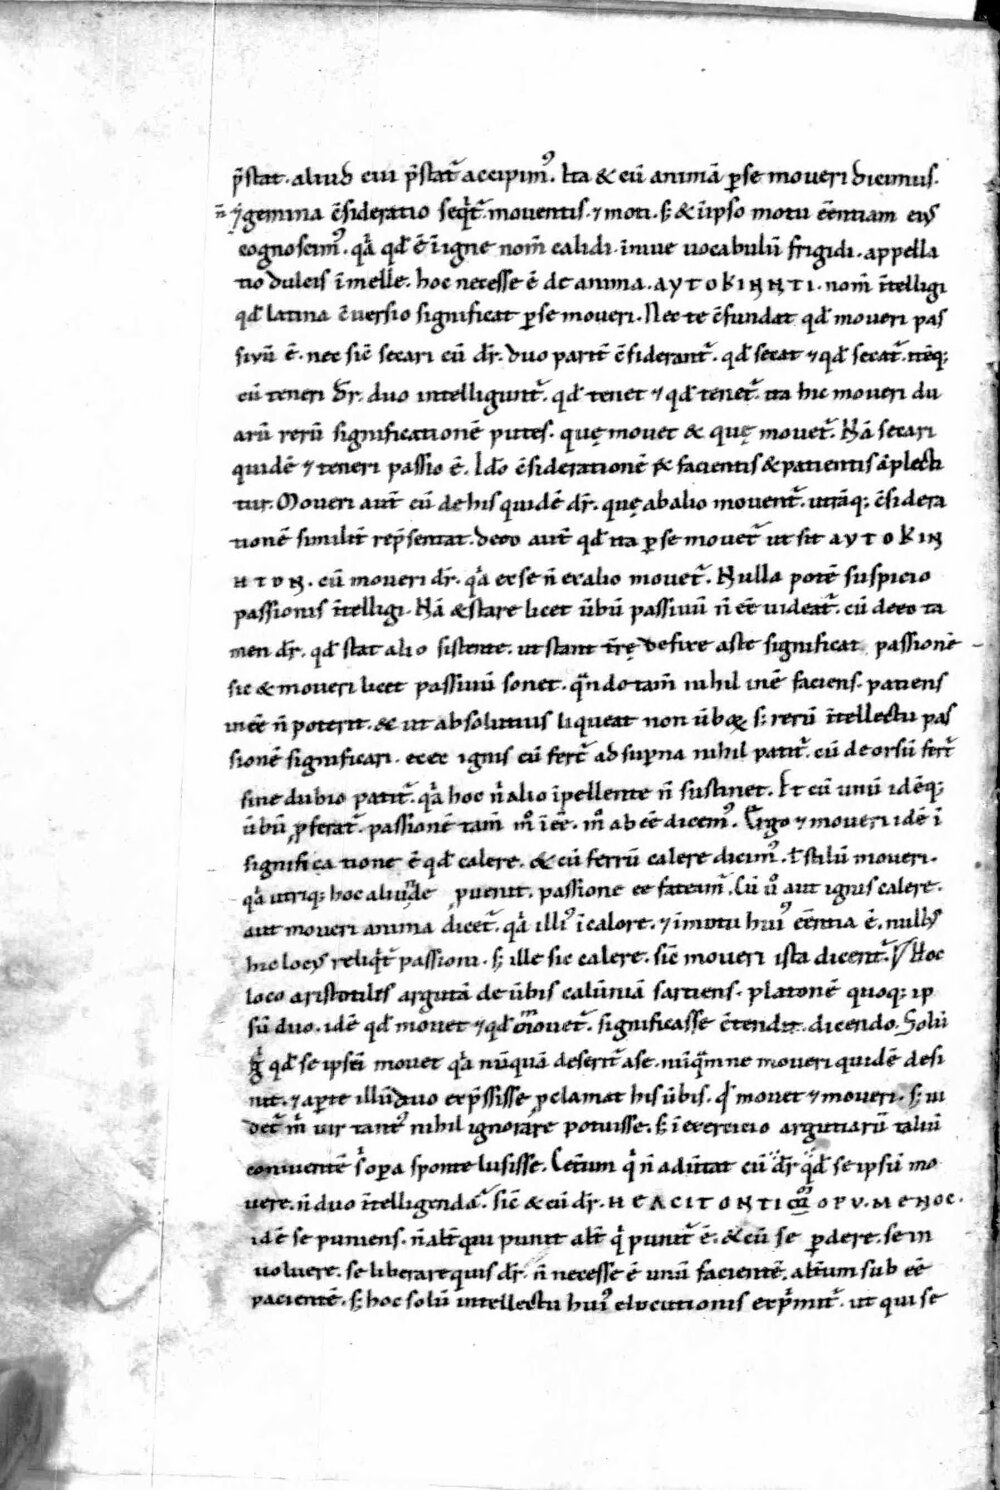 p̄stat. aliud cui p̄stat᷑ accipim᷒. Ita & cū animā ꝑse moveri dicimus.
n̄ gemina c̄sideratio seqt᷑. moventis. ⁊ moti. s; & ī ipso motu eēntiam eiꝰ
cognoscim᷒. qa qd̄ ē ī igne nom̄ calidi. ī nive vocabulū frigidi. appella
tio dulcis ī melle. hoc necesse ē de anima. ΑΥΤΟΚΙΝΗΤΙ. nom̄ ītelligi
qd̄ latina c̄versio significat ꝑse moveri. Nec te c̄fundat qd̄ moveri pas
sivū ē. nec sic̄ secari cū dr̄. duo parit̄ c̄siderant᷑. qd̄ secat ⁊ qd̄ secat᷑. itēq;
cū teneri dr̄. duo intelligunt᷑. qd̄ tenet ⁊ qd̄ tenet᷑. ita hic moveri du
arū rerū significationē putes. quę movet & quę movet᷑. Nā secari
quidē ⁊ teneri passio ē. Ido c̄siderationē & facientis & patientis āplecti
tur. Moveri aut̄ cū de his quidē dr̄. quę ab alio movent᷑. utrāq; c̄sidera
tionē similit̄ rep̄sentat. deeo aut̄ qd̄ ita ꝑse movet᷑ ut sit ΑΥΤΟΚΙΝ
ΗΤΟΝ. cū moveri dr̄. qa ex se n̄ ex alio movet᷑. Nulla potē suspicio
passionis ītelligi. Nā & stare licet ūbū passivū n̄ eē videat᷑. cū deeo ta
men dr̄. qd̄ stat alio sistente. ut stant tr̄ę defixe aste significat passionē
sic & moveri licet passivū sonet. qn̄do tam̄ nihil inē faciens. patiens
ineē n̄ poterit. & ut absolutius liqueat non ūboꝝ s; rerū ītellectu pas
sionē significari. ecce ignis cū fert᷑ ad supna nihil patit᷑. cū deorsū fert᷑
sine dubio patit᷑. qa hoc n alio īpellente n̄ sustinet. Et cū unū idēq;
ūbū ꝓferat᷑. passionē tam̄ m° ī eē. m° ab eē dicem᷒. Ergo ⁊ moveri idē ī
significatione ē qd̄ calere. & cū ferrū calere dicim᷒. ł stilū moveri.
qa utriq; hoc aliunde ꝓvenit. passione ee fateam᷑. Cū u° aut ignis calere.
aut moveri anima dicet᷑. qa illi᷒ ī calore. ⁊ ī motu hui᷒ eēntia ē. nullꝰ
hic locꝰ reliqt᷑ passioni. s; ille sic calere. sic̄ moveri ista dicent᷑. Hoc
loco aristotiles argutā de ūbis calūniā sartiens. platonē quoq; ip
sū duo. idē qd̄ movet ⁊ qd̄ movet᷑. significasse c̄tendit. dicendo. Solū
g qd̄ se ipsēī movet qa nūquā deserit᷑ a se. nūqm̄ ne moveri quidē desi
nit. ⁊ aꝑte illū duo exp̄ssisse ꝓclamat his ūbis. qd movet ⁊ moveri. s; vi
det᷑ m vir tant᷒ nihil ignorare potuisse. s; ī exercicio argutiarū taliū
conventē s opa sponte lusisse. Cet̄um q n̄ adūtat cū dr̄ qd̄ se ipsū mo
vere. n̄ duo ītelligenda᷑. sic̄ & cū dr̄. ΗΕΑCΙΤΟΝΤΙΜΟΡΥΜΕΝΟC.
idē se puniens. n̄ alt̄ qui punit alt̄ q punit᷑ ē. & cū se ꝑdere. se in
volvere. se liberare quis dr̄. n̄ necesse ē unū facientē. alt̄um sub eē
pacientē. s; hoc solū intellectu hui᷒ elocutionis exp̄mit᷑. ut qui se